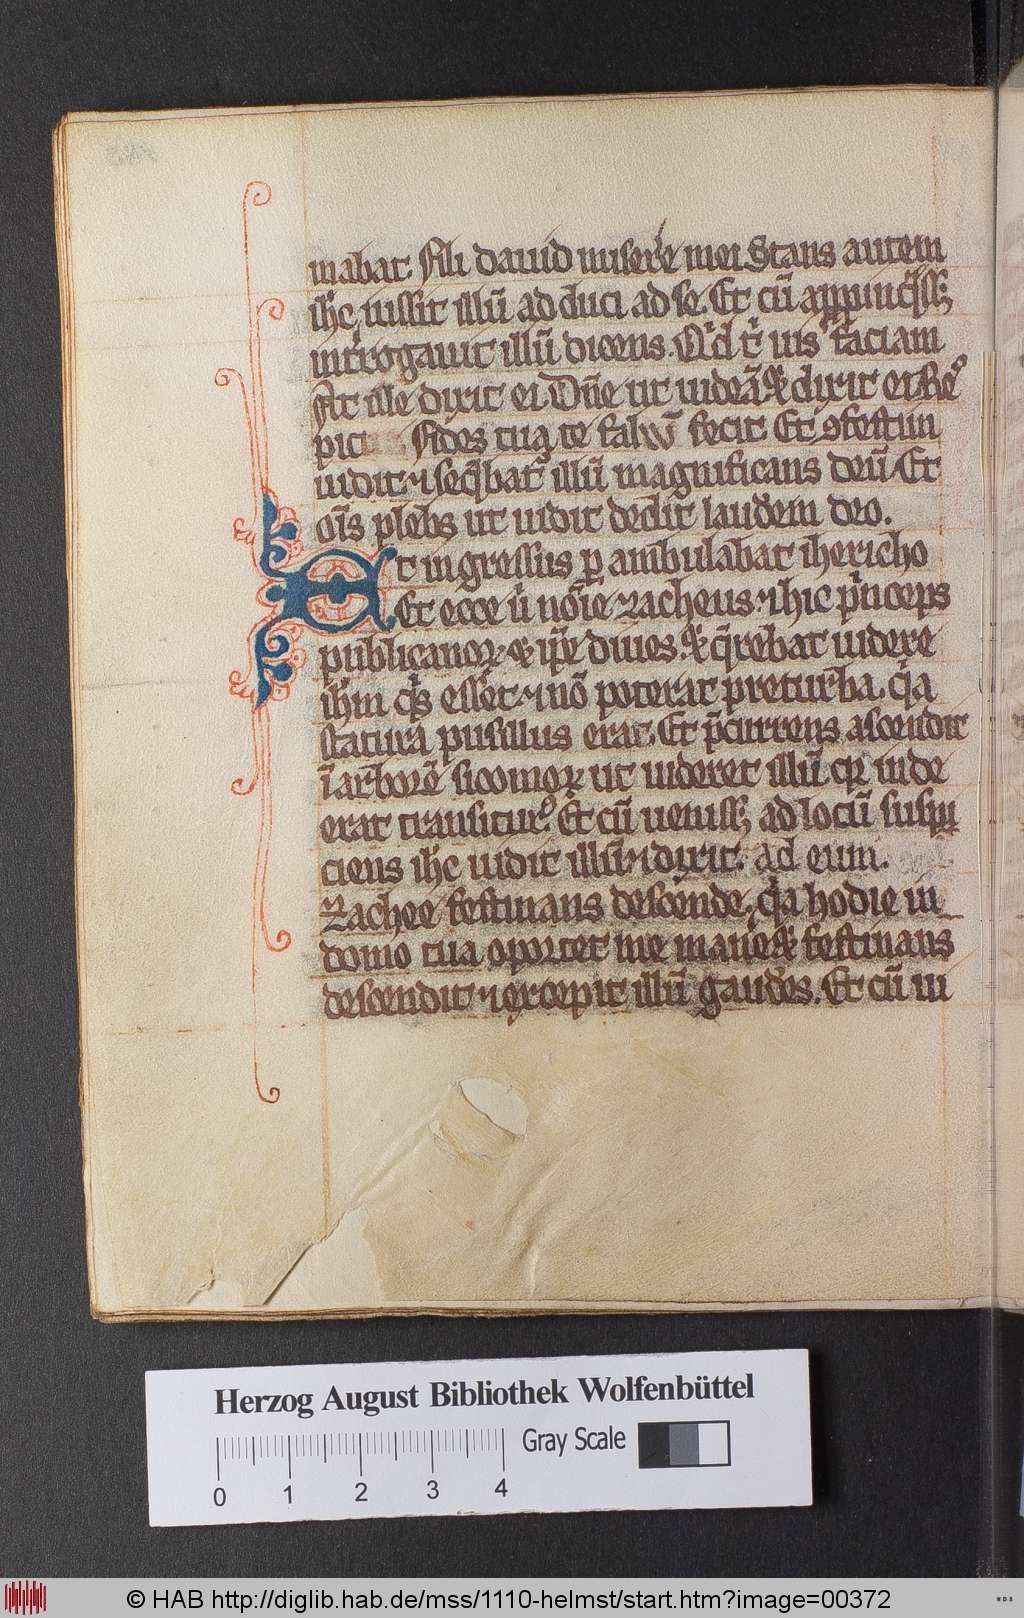 mabat. fili dauid miserẽe mei Stans autem
ihc̄ iussit illū ad duci ad se. Et cū apṗpinq̇ss;
int̄rogauit illū dicens. Qͥd tͥ uis faciam
At ille dixit ei Dn̄e ut uideā & dixit ei Reº
pice fides tua te saluū fecit Et ꝯfestim
uidit ⁊ seq̄bat᷑ illū magnificans deū Et
oīs plebs ut uidit dedit laudem deo.
Et ingressus ꝑ ambulabat ihericho
Et ecce ur̄ no̅i̅e zacheus ⁊ hic pͥnceps
publicanoꝝ & ip̄e diues & q̄rebat uidere
ih̄m qͥs ess̄et ⁊ nō poterat preturba. qͥa
statura pusillus erat. Et p̄currens ascendit
ī arborē sicomoꝝ ut uideret illū qꝛ inde
erat transiturꝰ Et cū uenisſ; ad locū suspi
ciens ih̄c uidit illū ⁊ dixit. ad eum.
Zachee festinans descende, qͥa hodie in
domo tua oportet me manēe & festinans
descendit ⁊ excepit illū gaudēs. Et cū ui
Herzog August Bibliothek Wolfenbüttel
Gray Scale
0 1 2 3 4
© HAB http://diglib.hab.de/mss/1110-helmst/start.htm?image=00372